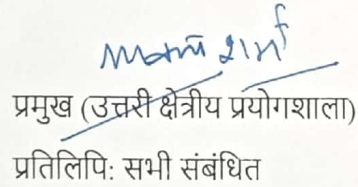 शर्मा
प्रमुख (उत्तरी क्षेत्रीय प्रयोगशाला)
प्रतिलिपि: सभी संबंधित